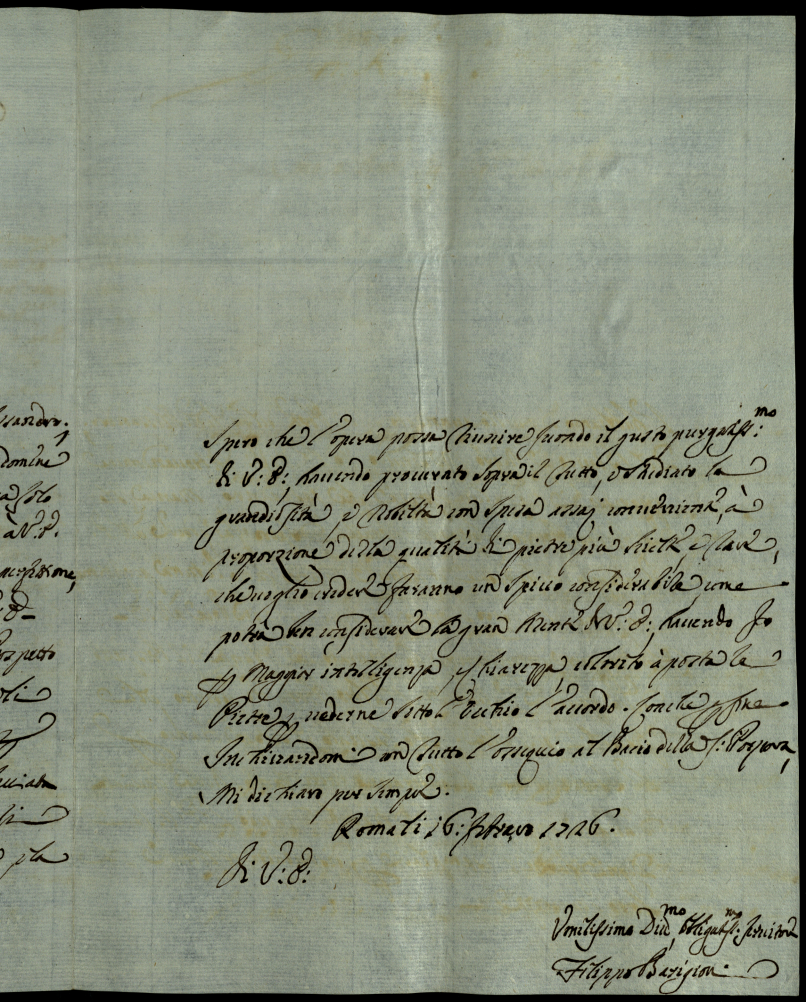 ssandro:
domine
a solo
à V: E:
perfezzione,
E:
rospetto
oli
p la
Spero che l'opera possa riuscire secondo il gusto purgatiss:mo
di V: E:, havendo procurato sopra il tutto, e studiato la
grandiosità, e nobiltà con spesa assaj conveniente, à
proporzione della qualità di pietre più scielte, e rare,
che voglio credere faranno un spicco considerabile, come
potrà ben considerare la gran Mente di V: E:, havendo Jo
p Maggior intelligenza, e chiarezza, colorito à posta le
Pietre p vederne sotto l'occhio l'accordo. Con che p fine
Inchinandomi con tutto l'ossequio al Bacio della S: Porpora,
Mi dichiaro per sempre.
Roma li 16: Febraro 1726.
Di V: E:
Umilissimo Div:mo Obligatiss:mo Servitore
Filippo Barigioni